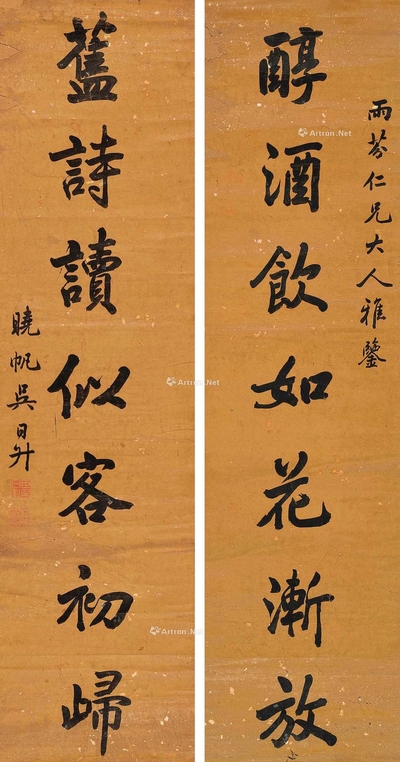 雨芬仁兄大人雅鑒
醇酒飲如花漸放
舊詩讀似客初歸
曉帆吳日升
Artron.Net
Artron.Net
Artron.Net